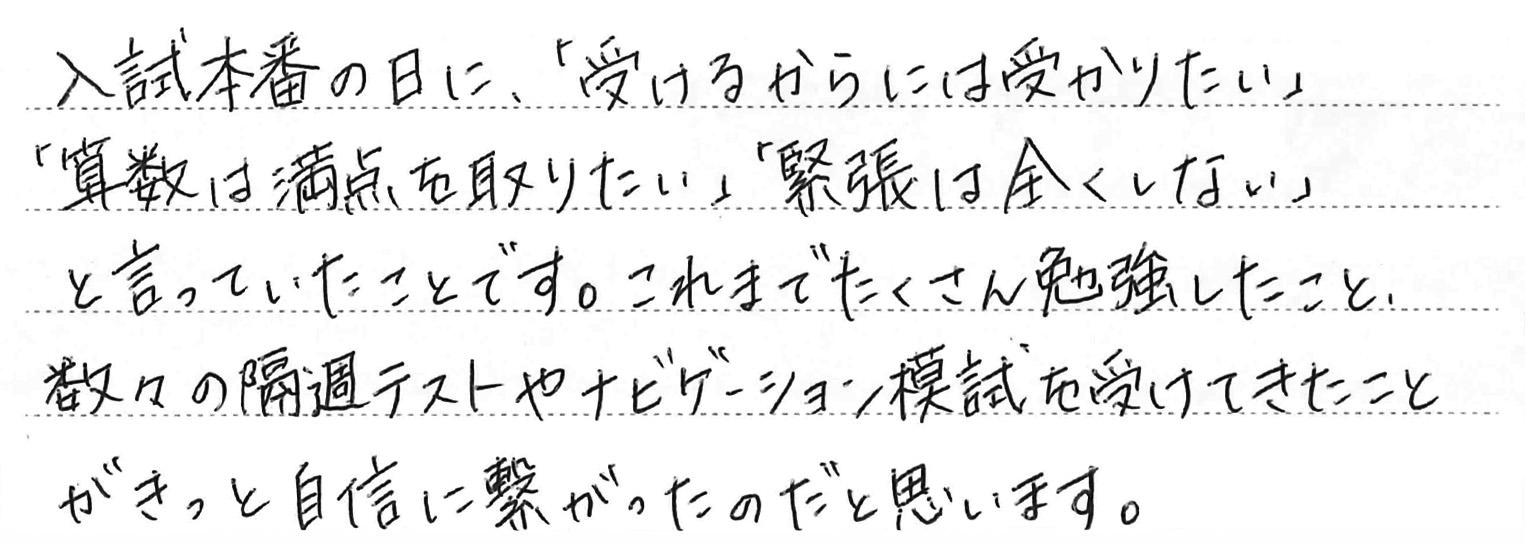 入試本番の日に、「受けるからには受かりたい」
「算数は満点を取りたい」「緊張は全くしない」
と言っていたことです。これまでたくさん勉強したこと、
数々の隔週テストやナビゲーション模試を受けてきたこと
がきっと自信に繋がったのだと思います。